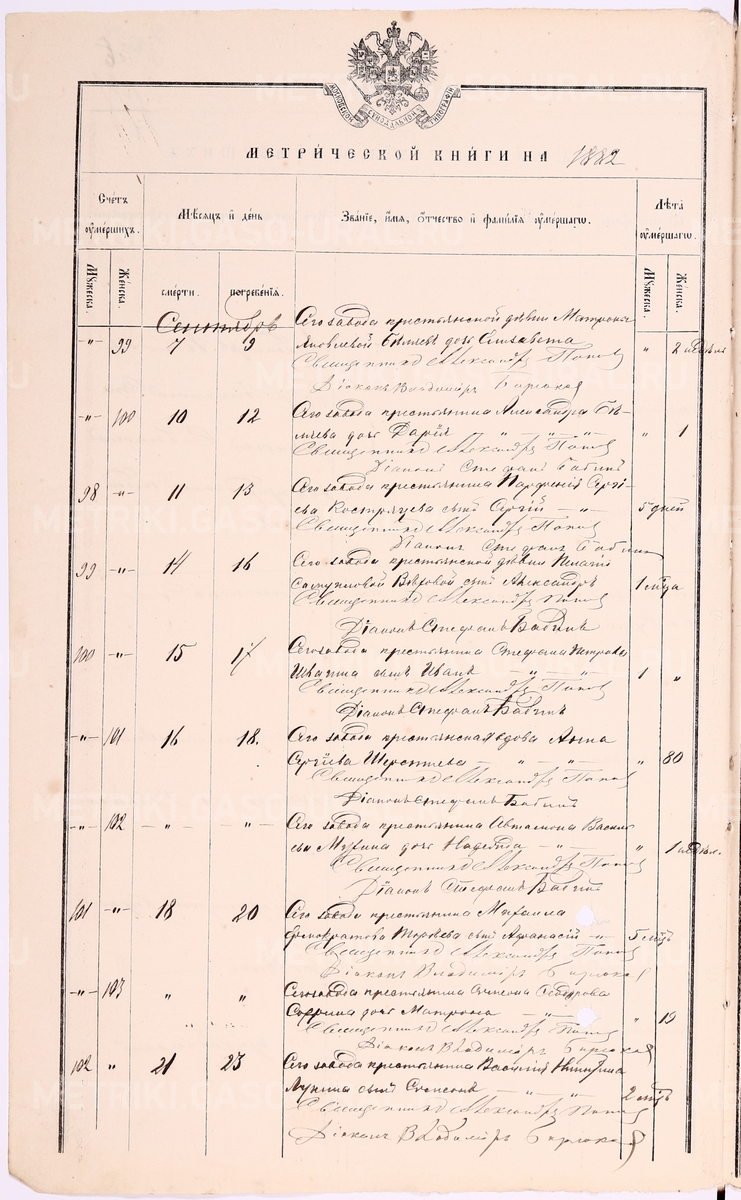 МЕТРИ́ЧЕСКОЙ КНИ́ГИ НА 1882
Счетъ оумершихъ.
Мѣсяцъ и день
Званіе, имя, отчество и фамилія оумершагѡ.
Лѣта оумершагѡ.
Мужеска.
Женска.
смерти.
погребенія.
Мужеска.
Женска.
Сентябрь
Сего завода крестьянской дѣвки Матроны
-"- 99 7 9 Яковлевой дочь Елизавета " 2 недѣли
Священникъ Александръ Поповъ
Діаконъ Владиміръ Бирюковъ
-"- 100 10 12 Сего завода крестьянина Александра
дочь Дарія " 1
Священникъ Александръ Поповъ
Діаконъ Стефанъ Бабинъ
98 -"- 11 13 Сего завода крестьянина Сергі-
ева сынъ Сергій 5 дней
Священникъ Александръ Поповъ
Діаконъ Стефанъ Бабинъ
99 -"- 14 16 Сего завода крестьянской дѣвки Пелагіи
сынъ Александръ 1 мѣся
Священникъ Александръ Поповъ
Діаконъ Стефанъ Бабинъ
100 -"- 15 17 Сего завода крестьянина Стефана Петрова
сынъ Иванъ 1 "
Священникъ Александръ Поповъ
Діаконъ Стефанъ Бабинъ
-"- 101 16 18. Сего завода крестьянская вдова Анна
Сергіева " 80
Священникъ Александръ Поповъ
Діаконъ Стефанъ Бабинъ
-"- 102 - " - " - Сего завода крестьянина Автамона Василь-
ева Мухина дочь Надежда " 1 недѣл.
Священникъ Александръ Поповъ
Діаконъ Стефанъ Бабинъ
101 -"- 18 20 Сего завода крестьянина Михаила
сынъ Афанасій 5 мѣсц
Священникъ Александръ Поповъ
Діаконъ Владиміръ Бирюковъ
-"- 103 " " Сего завода крестьянина Семена Ѳедорова
дочь Матрона " 19
Священникъ Александръ Поповъ
Діаконъ Владиміръ Бирюковъ
102 " 21 23 Сего завода крестьянина Василія Никитина
Лукина сынъ Семенъ 2 мѣсц
Священникъ Александръ Поповъ
Діаконъ Владиміръ Бирюковъ